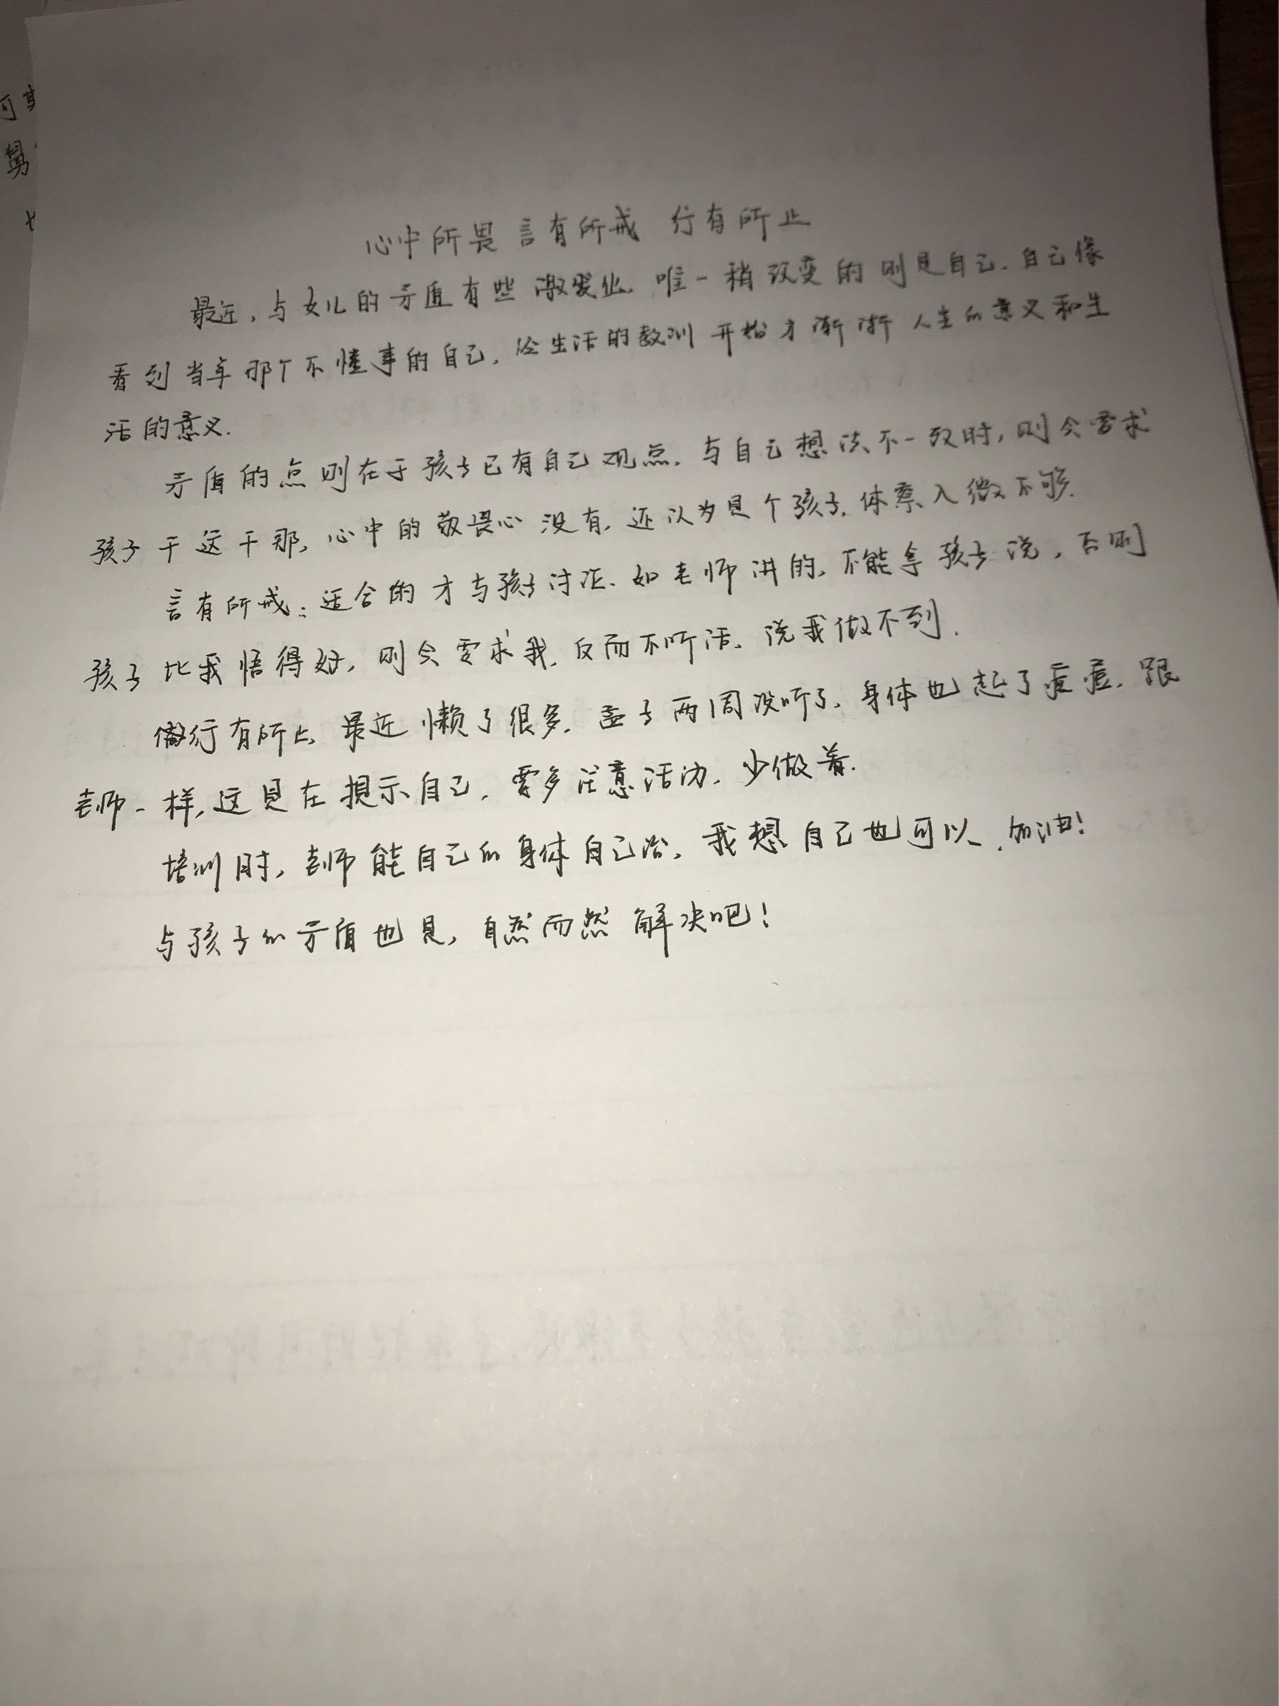 心中所畏 言有所戒 行有所止
最近,与女儿的矛盾有些激发化.唯一稍改变的则是自己.自己像
看到当年那个不懂事的自己,给生活的教训开始才渐渐人生的意义和生
活的意义.
矛盾的点则在于孩子已有自己观点.与自己想法不一致时,则会要求
孩子干这干那,心中的敬畏心没有.还认为是个孩子.体察入微不够.
言有所戒:适合的才与孩子讨论.如老师讲的,不能拿孩子说,否则
孩子比我悟得好,则会要求我.反而不听话.说我做不到.
行有所止.最近懒了很多.孟子两周没听了.身体也起了痘痘.跟
老师一样,这是在提示自己.要多注意活动.少做着.
培训时,老师能自己的身体自己治,我想自己也可以.加油!
与孩子的矛盾也是,自然而然解决吧!
可
舅